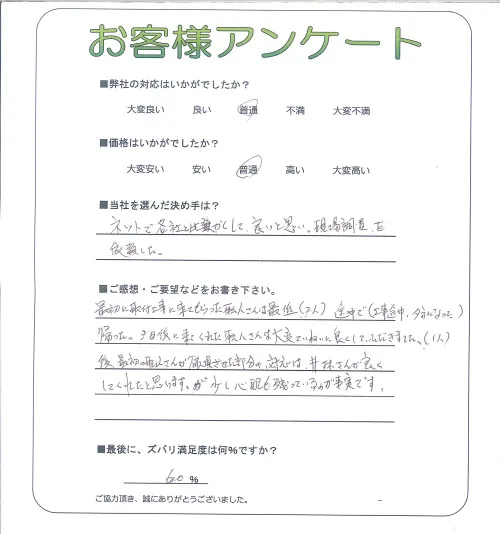 お客様アンケート
■弊社の対応はいかがでしたか？
大変良い 良い 普通 不満 大変不満
■価格はいかがでしたか？
大変安い 安い 普通 高い 大変高い
■当社を選んだ決め手は？
ネットで各社と比較して、良いと思い。現場調査を
依頼した。
■ご感想・ご要望などをお書き下さい。
最初に取付工事に来てもらった職人さんは最低(2人) 途中で(工事途中、夕方になった)
帰った。3日後に来てくれた職人さんは大変ていねいに良くしていただきました。(1人)
後、最初の職人さんが させた部分の対応は、 さんが良く
してくれたと思います。が少し心配も残っているのが事実です。
■最後に、ズバリ満足度は何％ですか？
60 %
ご協力頂き、誠にありがとうございました。